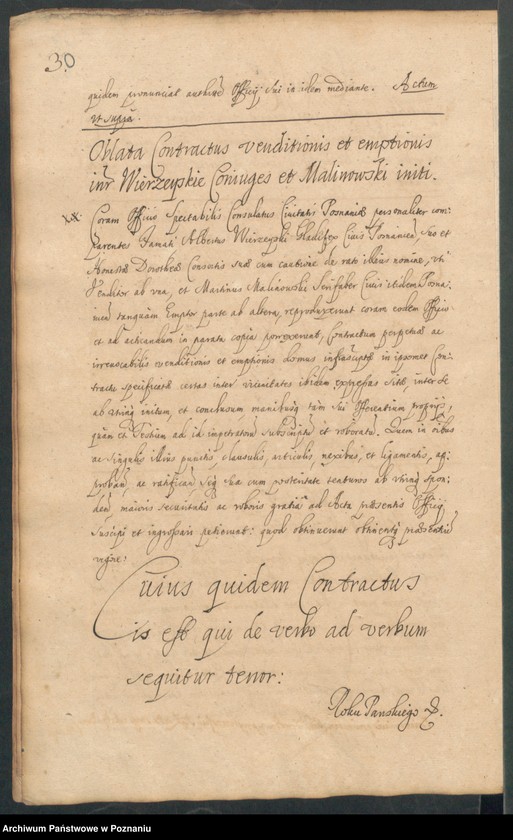 30
quidem pronunciat authoritate Officij sui in idem mediante. Actum
ut supra.
Oblata Contractus venditionis et emptionis
inter Wierzeyskie Coniuges et Malinowski initi.
Coram Officio Spectabilis Consulatus Civitatis Posnaniae personaliter com-
parentes Famati Albertus Wierzeyski Gladifex Civis Posnanien, suo et
Honestae Dorotheae Consortis suae cum cautione de rato illius nomine, uti
Venditor ab una, et Martinus Malinowski Serifaber Civis itidem Posna-
nien tanquam Emptor parte ab altera, reproduxerunt coram eodem Officio
et ad acticandum in parata copia porrexerunt, Contractum perpetuae ac
irrevocabilis venditionis et emptionis domus infrascriptae in ipsomet Con-
tractu specificatae certas inter vicinitates ibidem expressas sitae inter se
ab utrinque initum et conclusum manibusque tam sui offerentium proprijs,
quam et Testium ad id impetratorum subscriptum et roboratum. Quem in omnibus
ac singulis illius punctis, clausulis, articulis, nexibus, et ligamentis, ap-
proban, ac ratifican, seque cum posteritate tenturos ab utrinque spon-
den maioris securitatis ac roboris gratia ad Acta praesentis Officij
suscipi et ingrossari petierunt: quod obtinuerunt
vigore:
Cuius quidem Contractus
is est qui de verbo ad verbum
sequitur tenor:
Roku Panskiego
Archiwum Państwowe w Poznaniu